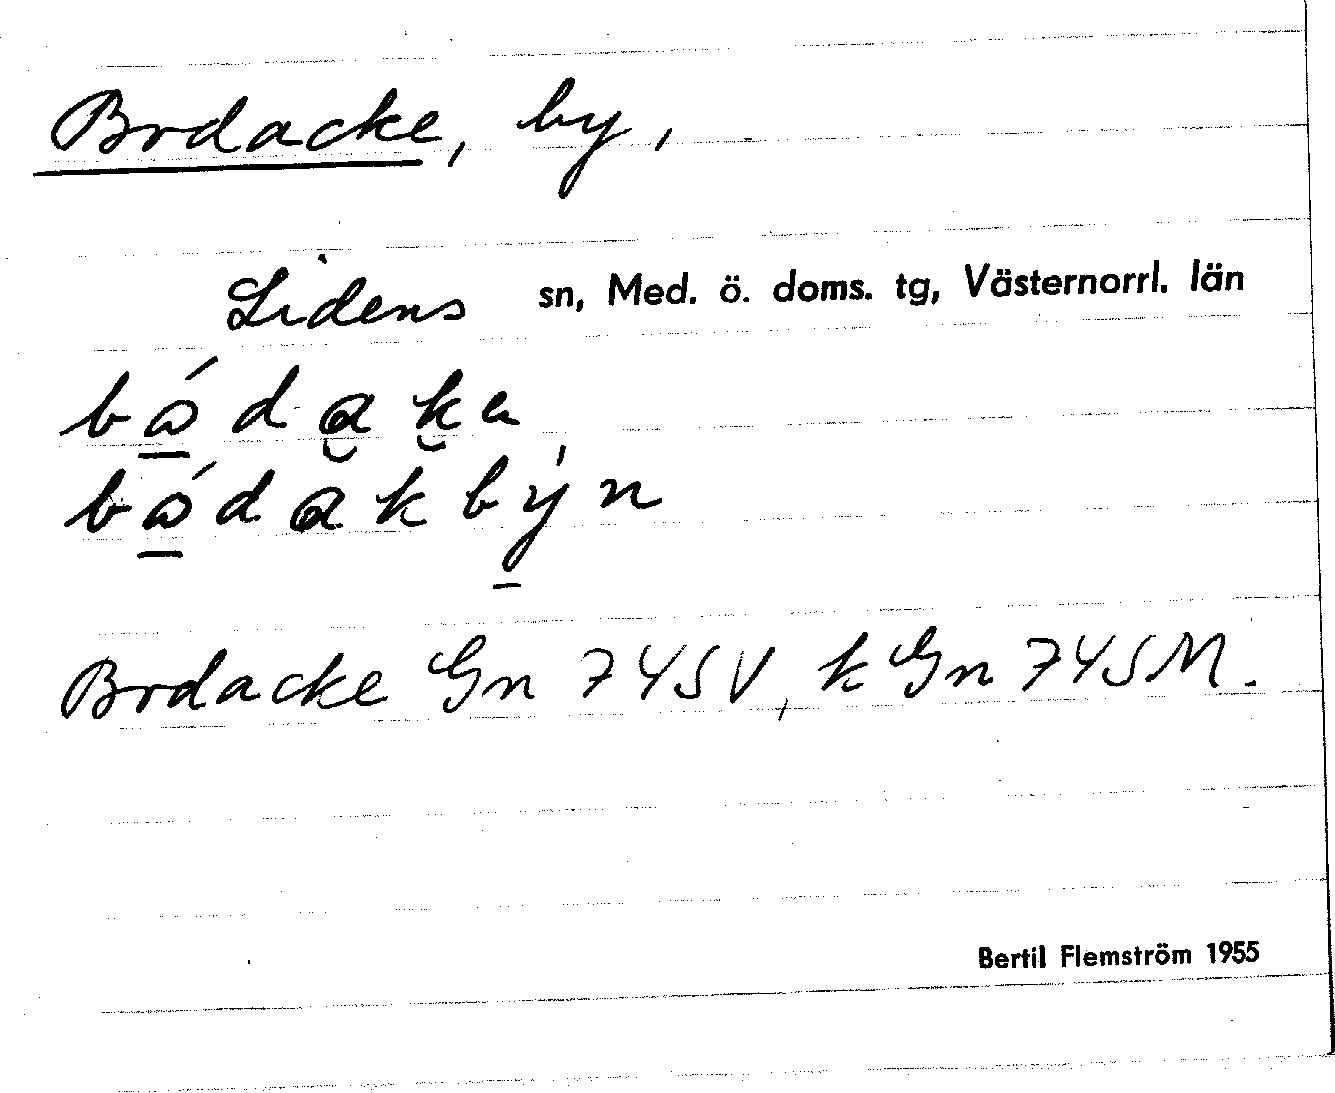 Brdacke, by,
Lidens sn, Med. ö. doms. tg, Västernorrl. län
Brdacke Gn 745V, k Gn 745M.
Bertil Flemström 1955